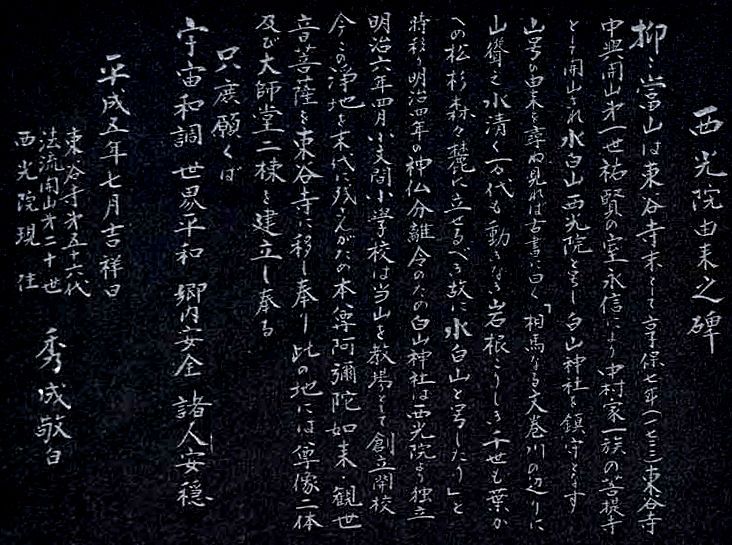 西光院由来之碑
抑々當山は東谷寺末として享保七年(一七二二)東谷寺
中興開山才一世祐賢の室永信により中村家一族の菩提寺
として開山され水白山西光院と号し白山神社を鎮守とす
山号の由来を尋ね見れば古書に曰く「相馬なる文巻川の辺りに
山聳え水清く万代も動きなき岩根こゝしき千世も葉か
への松杉森々麓に立せるべき故に水白山と号したり」と
時移り明治四年の神仏分離令のため白山神社は西光院より独立
明治六年四月小文間小学校は当山を教場として創立開校
今この浄地を末代に残さんがため本尊阿彌陀如来・観世
音菩薩を東谷寺に移し奉り此の地には尊像二体
及び大師堂二棟を建立し奉る
只庶願くば
宇宙和調 世界平和 郷内安全 諸人安穏
平成五年七月吉祥日
東谷寺才五十六代
法流開山才二十世
西光院現住
秀成敬白